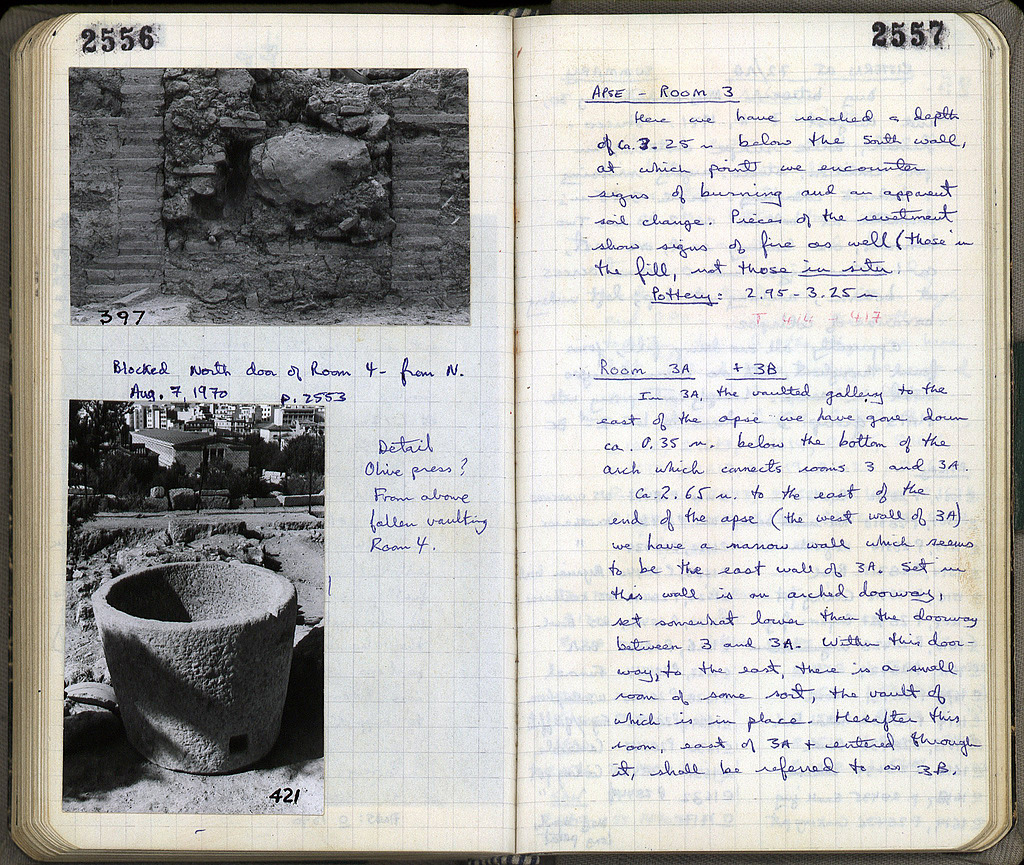 2556
397
Blocked North door of Room 4 - from N.
Aug. 7, 1970 p. 2553
Detail
Olive press?
From above
fallen vaulting
Room 4.
421
2557
APSE - ROOM 3
Here we have reached a depth
of ca. 3.25 m below the South wall,
at which point we encounter
signs of burning and an apparent
soil change. Pieces of the revetment
show signs of fire as well (those in
the fill, not those in situ.
Pottery: 2.95 - 3.25 m
T 414 - 417
Room 3A + 3B
In 3A, the vaulted gallery to the
east of the apse we have gone down
ca. 0.35 m. below the bottom of the
arch which connects rooms 3 and 3A.
Ca. 2.65 m. to the east of the
end of the apse (the west wall of 3A)
we have a narrow wall which seems
to be the east wall of 3A. Set in
this wall is an arched doorway,
set somewhat lower than the doorway
between 3 and 3A. Within this door-
way, to the east, there is a small
room of some sort, the vault of
which is in place. Hereafter this
room, east of 3A + entered through
it, shall be referred to as 3B.